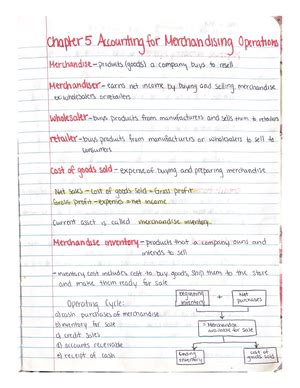 Chapter 5 Accounting for Merchandising Operations
Merchandise - products (goods) a company buys to resell
Merchandiser - earns net income by buying and selling merchandise
wholesalers or retailers
Wholesaler - buys products from manufacturers and sells them to retailers
retailer - buys products from manufacturers or wholesalers to sell to
consumers
Cost of goods sold - expense of buying and preparing merchandise
Net sales - cost of goods sold = Gross profit
Gross profit - expenses = net income
Current asset is called merchandise inventory
Merchandise inventory - products that a company owns and
intends to sell
- inventory cost includes cost to buy goods, ship them to the store
and make them ready for sale
Operating Cycle:
a) cash purchases of merchandise
b) inventory for sale
c) credit sales
d) accounts receivable
e) receipt of cash
beginning
inventory
+
Net
purchases
= Merchandise
available for sale
Ending
inventory
+
cost of
goods sold